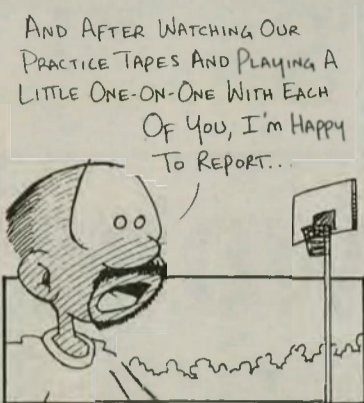 And After Watching Our
Practice Tapes And Playing A
Little One-On-One With Each
Of You, I'm Happy
To Report...